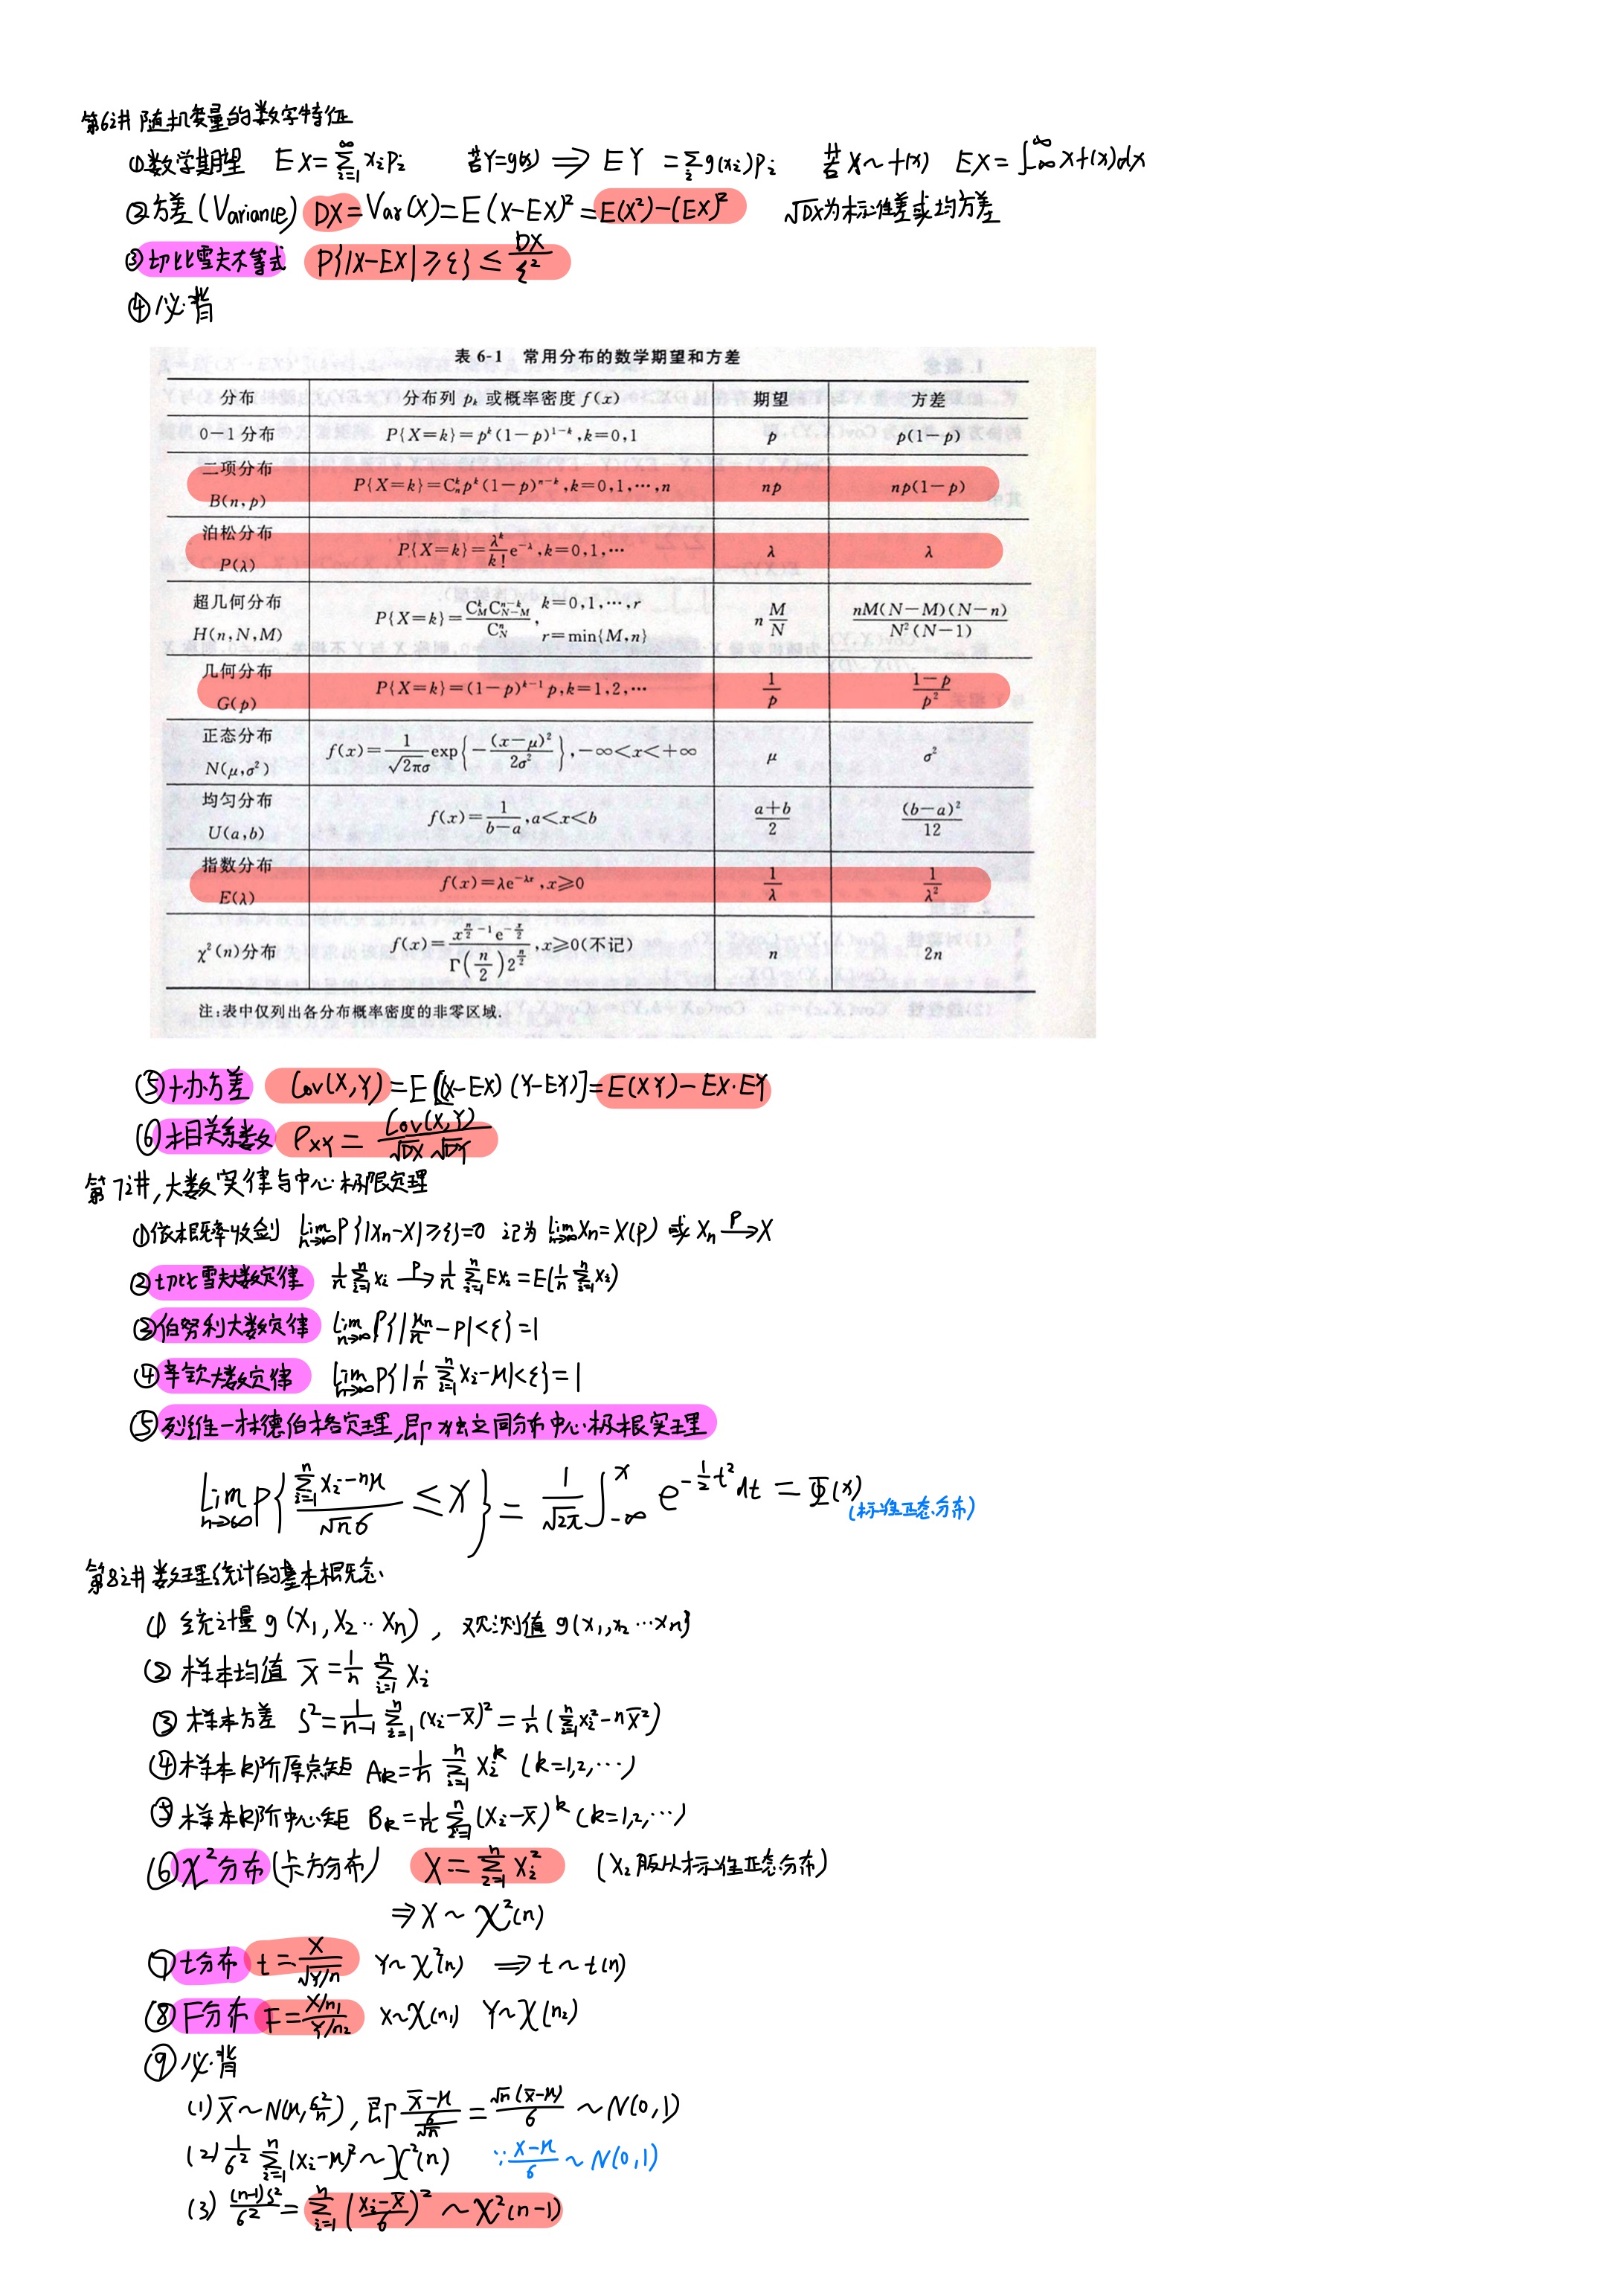 第6讲 随机变量的数字特征
①数学期望 EX=∑_{i=1}^{∞} x_i p_i 若Y=g(x) ⟹ EY =∑_i g(x_i)p_i 若X~f(x) EX=∫_{-∞}^{∞} xf(x)dx
②方差(Variance) DX=Var(X)=E(X-EX)²=E(X²)-(EX)² √DX为标准差或均方差
③切比雪夫不等式 P{|X-EX|≥ε}≤DX/ε²
④必背
表 6-1 常用分布的数学期望和方差
分布 分布列 p_k 或概率密度 f(x) 期望 方差
0-1 分布 P{X=k}=p^k(1-p)^{1-k},k=0,1 p p(1-p)
二项分布 B(n,p) P{X=k}=C_n^k p^k(1-p)^{n-k},k=0,1,⋯,n np np(1-p)
泊松分布 P(λ) P{X=k}=λ^k/k! e^{-λ},k=0,1,⋯ λ λ
超几何分布 H(n,N,M) P{X=k}=C_M^k C_{N-M}^{n-k}/C_N^n, k=0,1,⋯,r r=min{M,n} n M/N nM(N-M)(N-n)/N²(N-1)
几何分布 G(p) P{X=k}=(1-p)^{k-1}p,k=1,2,⋯ 1/p (1-p)/p²
正态分布 N(μ,σ²) f(x)=1/(√2πσ) exp{-(x-μ)²/2σ²},-∞<x<+∞ μ σ²
均匀分布 U(a,b) f(x)=1/(b-a),a<x<b (a+b)/2 (b-a)²/12
指数分布 E(λ) f(x)=λe^{-λx},x≥0 1/λ 1/λ²
χ²(n)分布 f(x)=x^{n/2-1}e^{-x/2}/(Γ(n/2)2^{n/2}),x≥0(不记) n 2n
注:表中仅列出各分布概率密度的非零区域.
⑤协方差 Cov(X,Y)=E[(X-EX)(Y-EY)]=E(XY)-EX·EY
⑥相关系数 ρ_{XY}=Cov(X,Y)/(√DX √DY)
第7讲,大数定律与中心极限定理
①依概率收敛 lim_{n→∞}P{|X_n-X|≥ε}=0 记为 lim_{n→∞}X_n=X(P) 或 X_n —P→X
②切比雪夫大数定律 1/n ∑_{i=1}^{n} X_i —P→ 1/n ∑_{i=1}^{n} EX_i=E(1/n ∑_{i=1}^{n} X_i)
③伯努利大数定律 lim_{n→∞}P{|μ_n/n-p|<ε}=1
④辛钦大数定律 lim_{n→∞}P{|1/n ∑_{i=1}^{n} X_i-μ|<ε}=1
⑤列维-林德伯格定理,即独立同分布中心极限定理
lim_{n→∞}P{(∑_{i=1}^{n} X_i-nμ)/(√nσ)≤x}=1/√2π ∫_{-∞}^{x} e^{-1/2 t²}dt=Φ(x)
(标准正态分布)
第8讲 数理统计的基本概念
① 统计量 g(X_1,X_2··X_n), 观测值 g(x_1,x_2⋯x_n)
② 样本均值 X̄=1/n ∑_{i=1}^{n} X_i
③ 样本方差 S²=1/(n-1) ∑_{i=1}^{n}(X_i-X̄)²=1/n(∑_{i=1}^{n}X_i²-nX̄²)
④样本k阶原点矩 A_k=1/n ∑_{i=1}^{n} X_i^k (k=1,2,⋯)
⑤样本k阶中心矩 B_k=1/n ∑_{i=1}^{n}(X_i-X̄)^k (k=1,2,⋯)
⑥χ²分布(卡方分布) X=∑_{i=1}^{n} X_i² (X_i服从标准正态分布)
⇒X~χ²(n)
⑦t分布 t=X/√(Y/n) Y~χ²(n) ⟹t~t(n)
⑧F分布 F=(X/n_1)/(Y/n_2) X~χ(n_1) Y~χ(n_2)
⑨必背
(1) X̄~N(μ,σ²/n),即 (X̄-μ)/(σ/√n)=√n(X̄-μ)/σ ~N(0,1)
(2) 1/σ² ∑_{i=1}^{n}(X_i-μ)²~χ²(n) ∵(X-μ)/σ~N(0,1)
(3) (n-1)S²/σ²=∑_{i=1}^{n}((X_i-X̄)/σ)²~χ²(n-1)